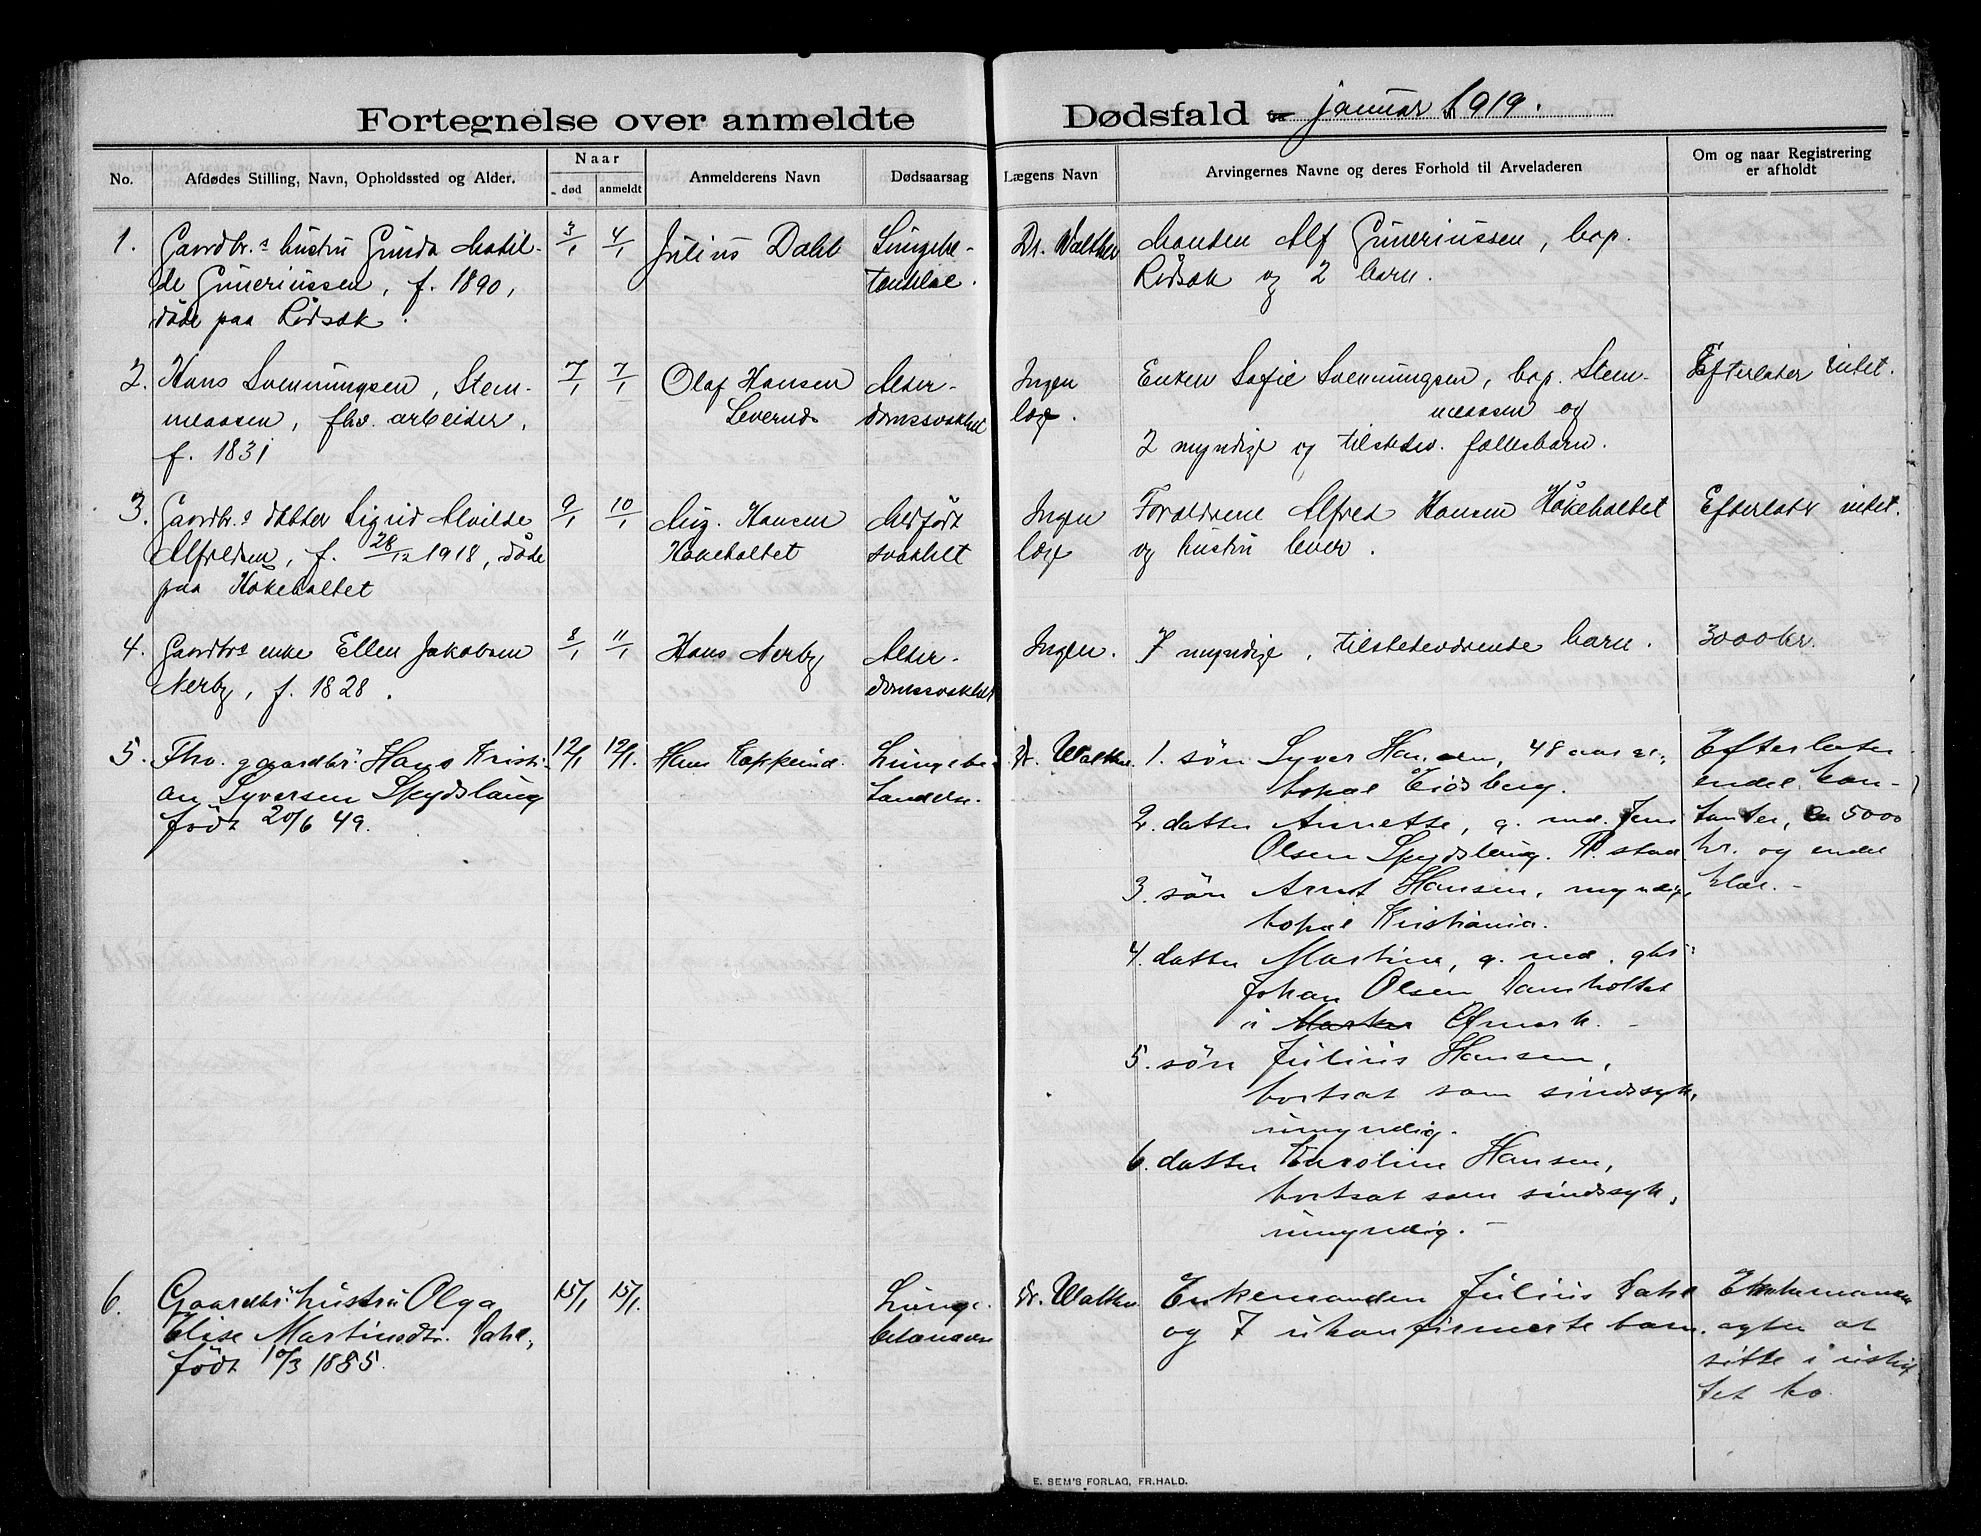 Fortegnelse over anmeldte Dødsfald januar 1919.
No.
Afdødes Stilling, Navn, Opholdssted og Alder.
Naar
død
anmeldt
Anmelderens Navn
Dødsaarsag
Lægens Navn
Arvingernes Navne og deres Forhold til Arveladeren
Om og naar Registrering
er afholdt
1.
Gaardbr.s hustru Gunda Matil-
de Guneriussen, f. 1890,
døde paa Rødsæk.
3/1
4/1
Julius Dahl
Lungebe-
tændelse.
Dr. Walther
Manden Alf Guneriussen, bop.
Rødsæk og 2 barn.
2.
Hans Svenningsen, Stem-
meaasen, fhv. arbeider,
f. 1831
7/1
7/1
Olaf Hansen
Levernes
Alder-
domssvakhet
Ingen
læge.
Enken Sofie Svenningsen, bop. Stem-
meaasen og
2 myndige og tilstedev. fællesbarn.
Efterlater intet.
3.
Gaardbr.s datter Sigrid Alvilde
Alfredsen, f. 28/12 1918, døde
paa Høkeholtet
9/1
10/1
Aug. Hansen
Høkeholtet
Medfødt
svakhet
Ingen
læge
Forældrene Alfred Hansen Hökeholtet
og hustru lever.
Efterlater intet.
4.
Gaardbrs enke Ellen Jakobsen
Nerby, f. 1828.
8/1
11/1
Hans Nerby
Alder-
domssvakhet
Ingen.
7 myndige, tilstedeværende barn.
3000 kr.
5.
Fhv. gaardbr. Hans Kristi-
an Syversen Spydslaug
født 20/6 49.
12/1
12/1.
Hans
Lungebe-
tændelse.
Dr. Walther
1. søn Syver Hansen, 48 aar gl.,
bopæl Eidsberg.
2. datter Annette, g. med Jens
Olsen Spydslaug.
3 søn Arnt Hansen, myndig,
bopæl Kristiania.
4. datter Martine, g. med. gbr.
Johan Olsen Damholtet
i Marker Øimark. -
5. søn Julius Hansen,
bortsat som sindssyk,
umyndig.
6. datter Karoline Hansen,
bortsat som sindssyk,
umyndig. -
Efterlater
endel kon-
tanter, ca 5000
kr. og endel
klær. -
6.
Gaardbr. hustru Olga
Elise Martinsdtr. Dahl,
født 10/3 1885.
15/1
15/1.
Lunge-
betændelse
Dr. Walther
Enkemanden Julius Dahl
og 7 ukonfirmerte barn.
Enkemanden
agter at
sitte i uskif-
tet bo.
E. SEM'S FORLAG, FR.HALD.